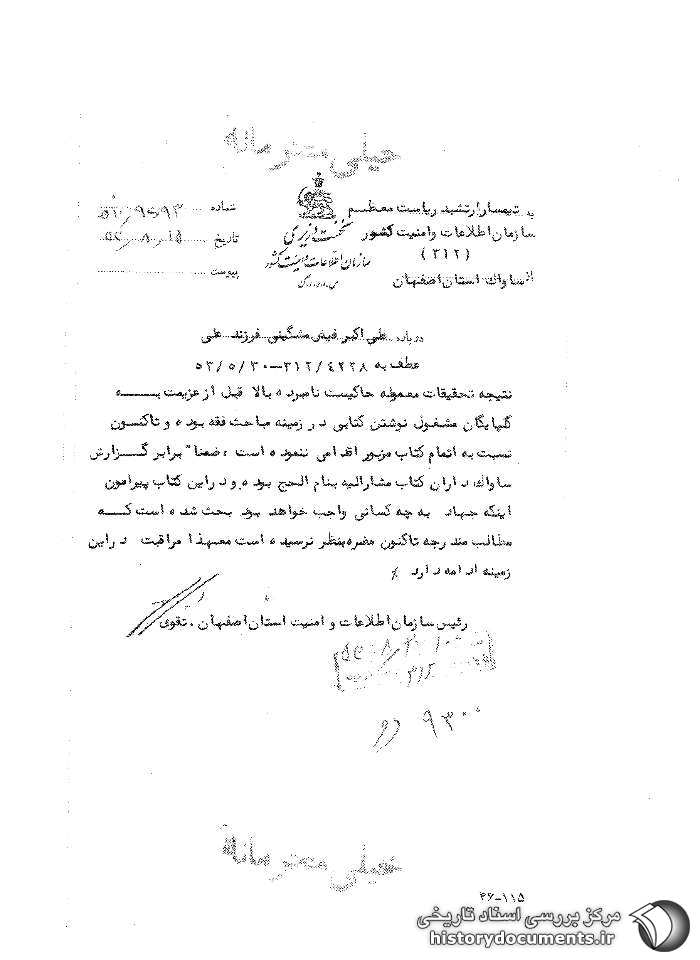 خیلی محرمانه
به تیمسار ارتشبد ریاست معظم
سازمان اطلاعات و امنیت کشور
(۳۱۲)
از ساواك استان اصفهان
نخست وزیری
سازمان اطلاعات و امنیت کشور
س.ا.و.ا.ك
شماره
تاریخ ۱۵
پیوست
درباره علی اکبر فیض مشگینی فرزند علی
عطف به ۳۱۲/٤۲۲۸—۵۳/۵/۳۰
نتیجه تحقیقات معموله حاکیست نامبرده بالا قبل از عزیمت به
گلپایگان مشغول نوشتن کتابی در زمینه مباحث فقه بوده و تاکنون
نسبت به اتمام کتاب مزبور اقدامی ننموده است، ضمنا" برابر گزارش
ساواك داران کتاب مشارالیه بنام الحج بوده و در این کتاب پیرامون
اینکه جهاد به چه کسانی واجب خواهد بود بحث شده است که
مطالب مندرجه تاکنون مضره بنظر نرسیده است معهذا مراقبت در این
زمینه ادامه دارد
رئیس سازمان اطلاعات و امنیت استان اصفهان . تقوی
۳۱۲
۹۳۰۰
خیلی محرمانه
۴۶-۱۱۵
مرکز بررسی اسناد تاریخی
historydocuments.ir